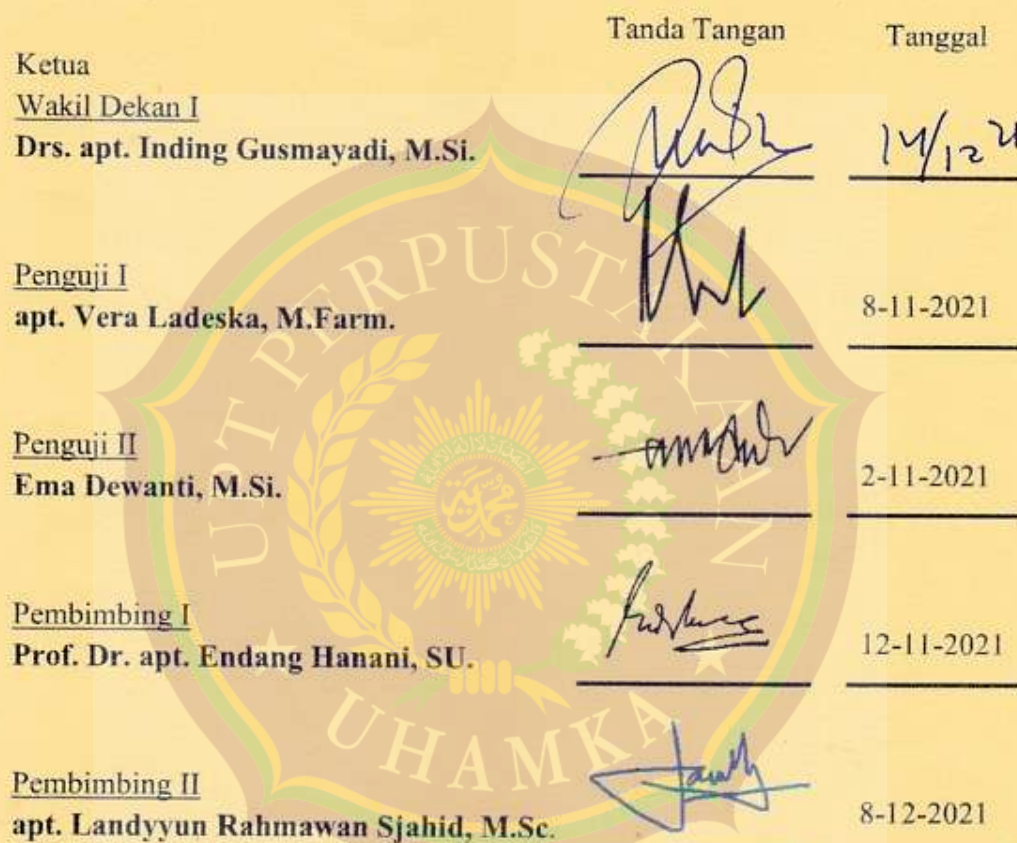 Tanda Tangan Tanggal
Ketua
Wakil Dekan I
Drs. apt. Inding Gusmayadi, M.Si. 14/12 21
Penguji I
apt. Vera Ladeska, M.Farm. 8-11-2021
Penguji II
Ema Dewanti, M.Si. 2-11-2021
Pembimbing I
Prof. Dr. apt. Endang Hanani, SU. 12-11-2021
Pembimbing II
apt. Landyyun Rahmawan Sjahid, M.Sc. 8-12-2021
UPT PERPUSTAKAAN
UHAMKA